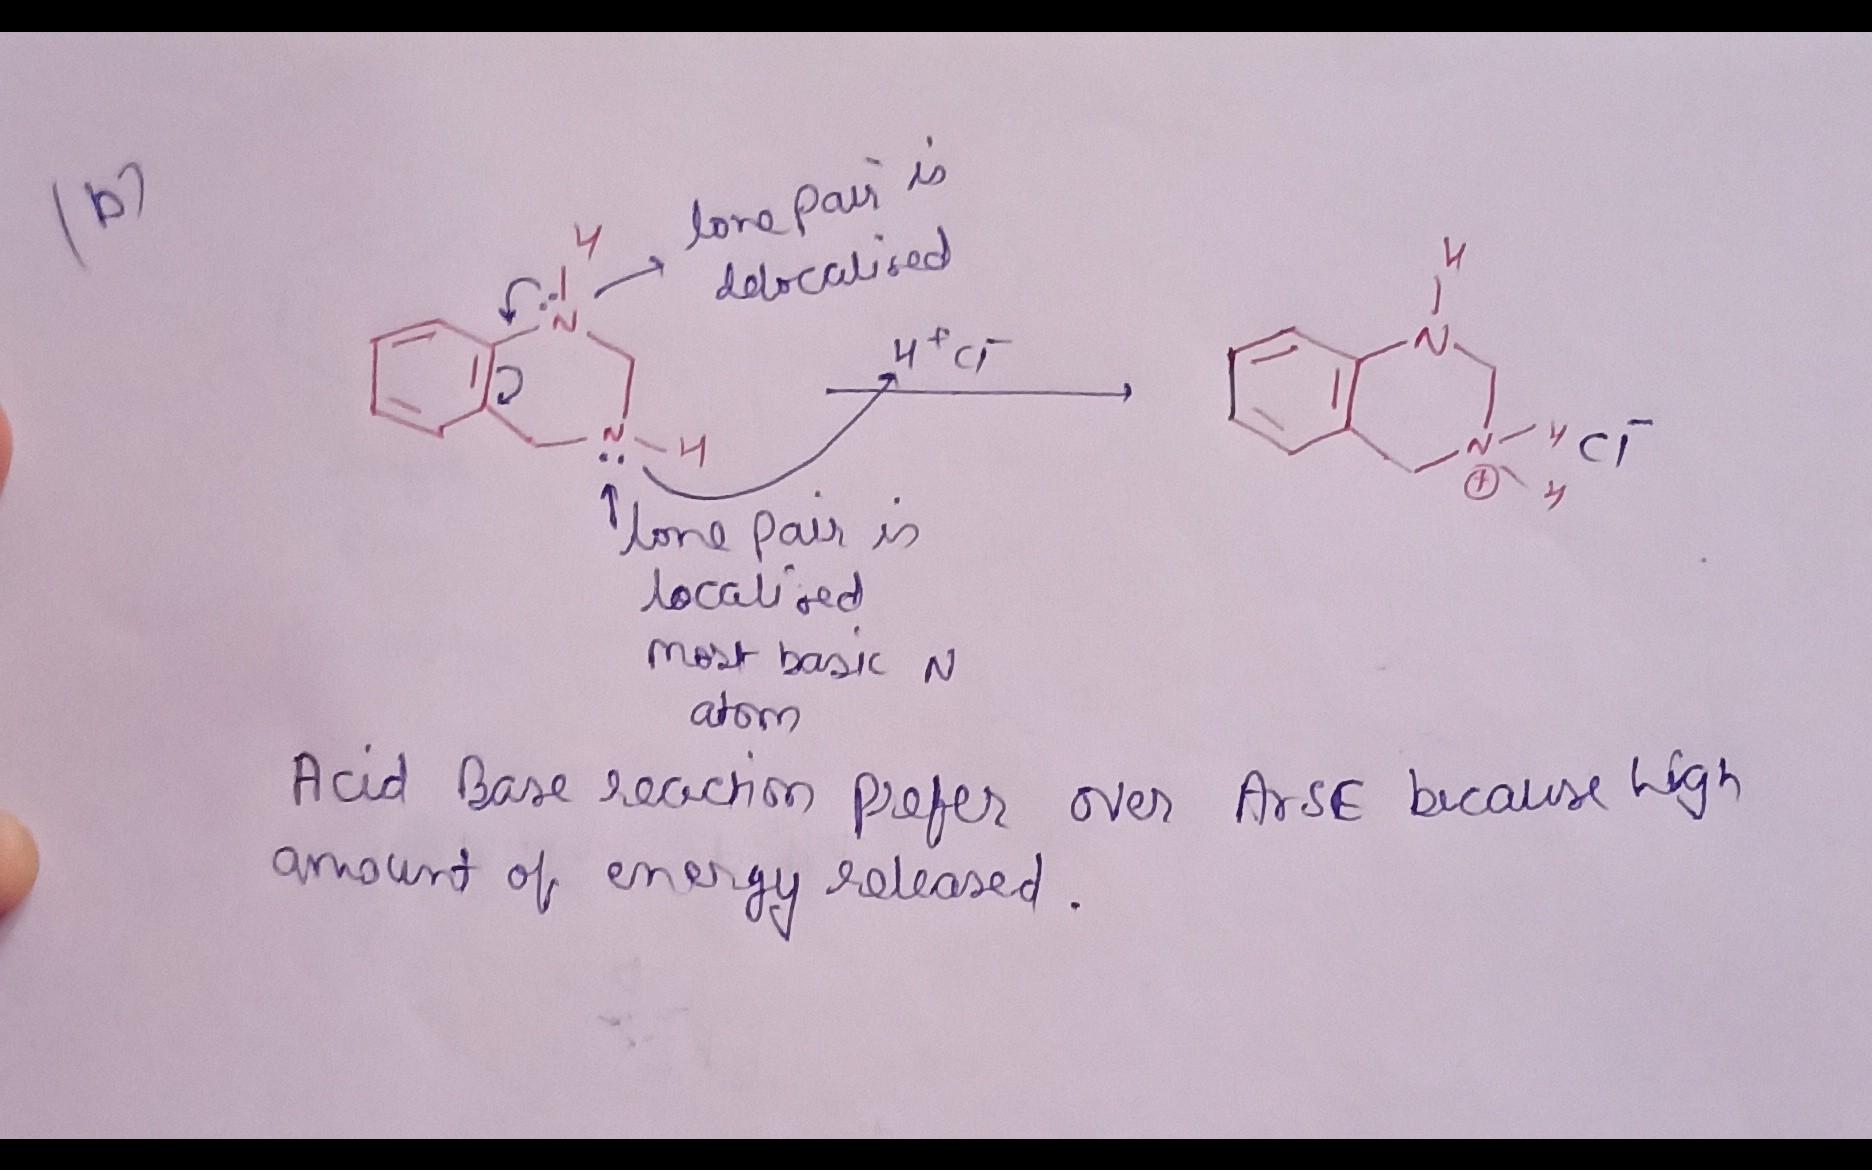 (b)
H
lone pair is
delocalised
N
H⁺Cl⁻
N
H
lone pair is
localised
most basic N
atom
H
N
N
H
Cl⁻
⊕
H
Acid Base reaction prefer over ArSE because high
amount of energy released.